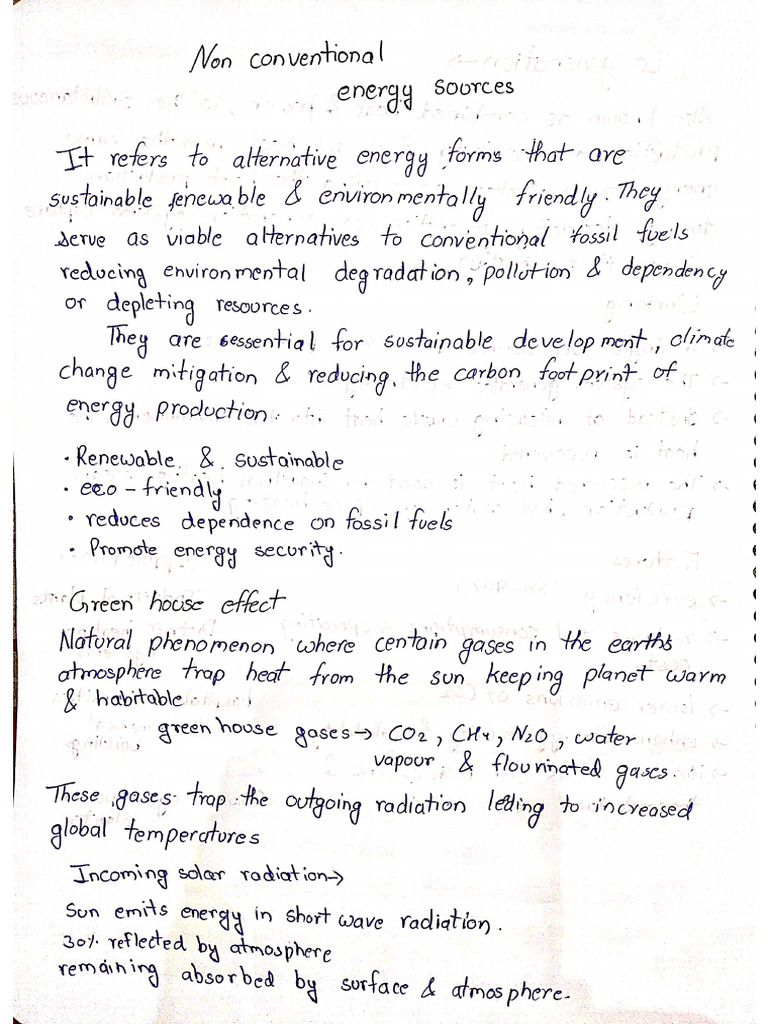 Non conventional
energy sources
It refers to alternative energy forms that are
sustainable renewable & environmentally friendly. They
serve as viable alternatives to conventional fossil fuels
reducing environmental degradation, pollution & dependency
or depleting resources.
They are essential for sustainable development, climate
change mitigation & reducing the carbon footprint of
energy production.
• Renewable & sustainable
• eco-friendly
• reduces dependence on fossil fuels
• Promote energy security.
Green house effect
Natural phenomenon where centain gases in the earths
atmosphere trap heat from the sun keeping planet warm
& habitable
green house gases → CO2, CH4, N2O, water
vapour & flourinated gases.
These gases trap the outgoing radiation leding to increased
global temperatures
Incoming solar radiation →
Sun emits energy in short wave radiation.
30% reflected by atmosphere
remaining absorbed by surface & atmosphere.